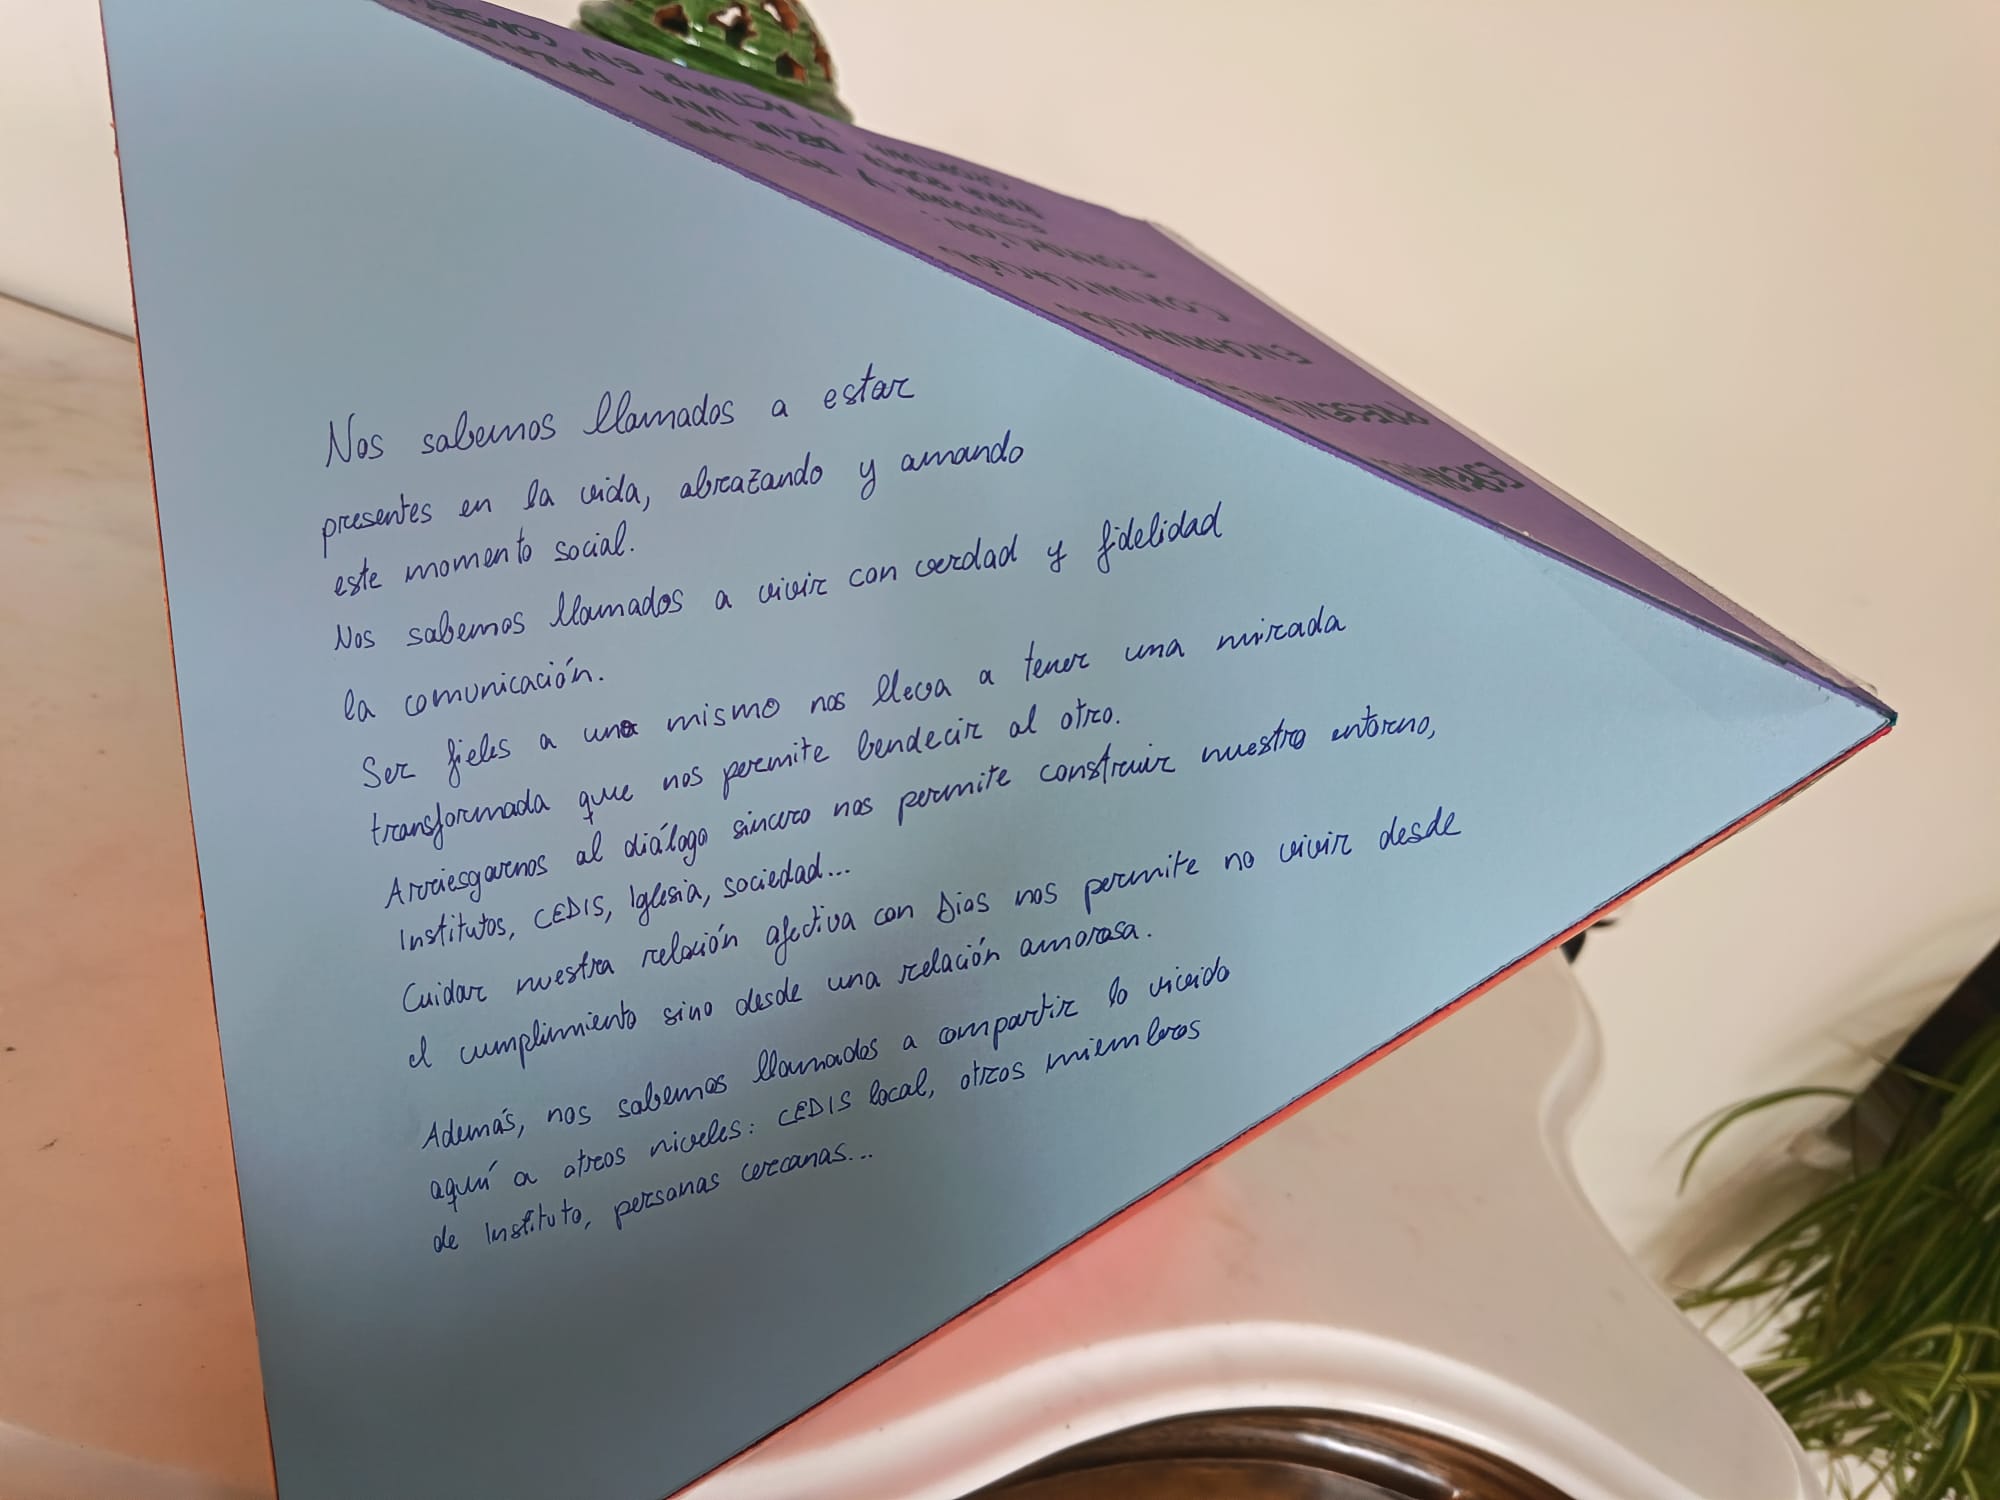 Nos sabemos llamados a estar
presentes en la vida, abrazando y amando
este momento social.
Nos sabemos llamados a vivir con verdad y fidelidad
la comunicación.
Ser fieles a uno mismo nos lleva a tener una mirada
transformada que nos permite bendecir al otro.
Arriesgarnos al diálogo sincero nos permite construir nuestro entorno,
Institutos, CEDIS, Iglesia, sociedad...
Cuidar nuestra relación afectiva con Dios nos permite no vivir desde
el cumplimiento sino desde una relación amorosa.
Además, nos sabemos llamados a compartir lo vivido
aquí a otros niveles: CEDIS local, otros miembros
de Instituto, personas cercanas...
COMUNICACIÓN
ENCARNACIÓN